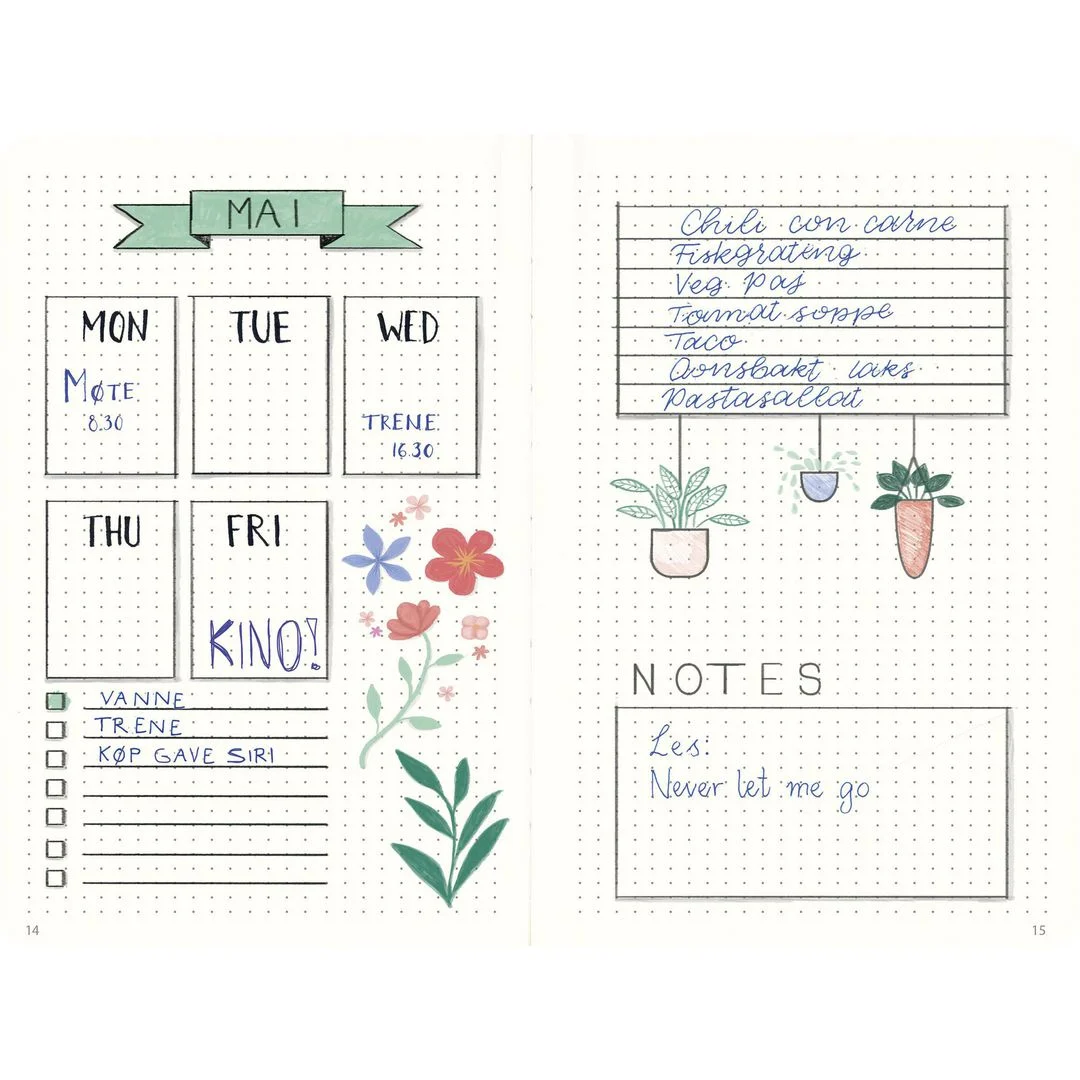 MAI
MON
MØTE
8.30
TUE
WED
TRENE
16.30
THU
FRI
KINO!
VANNE
TRENE
KØP GAVE SIRI
14
Chili con carne
Fiskgrateng
Veg. Paj
Tomat soppe
Taco
Oonsbakt laks
Pastasallat
NOTES
Les:
Never let me go
15